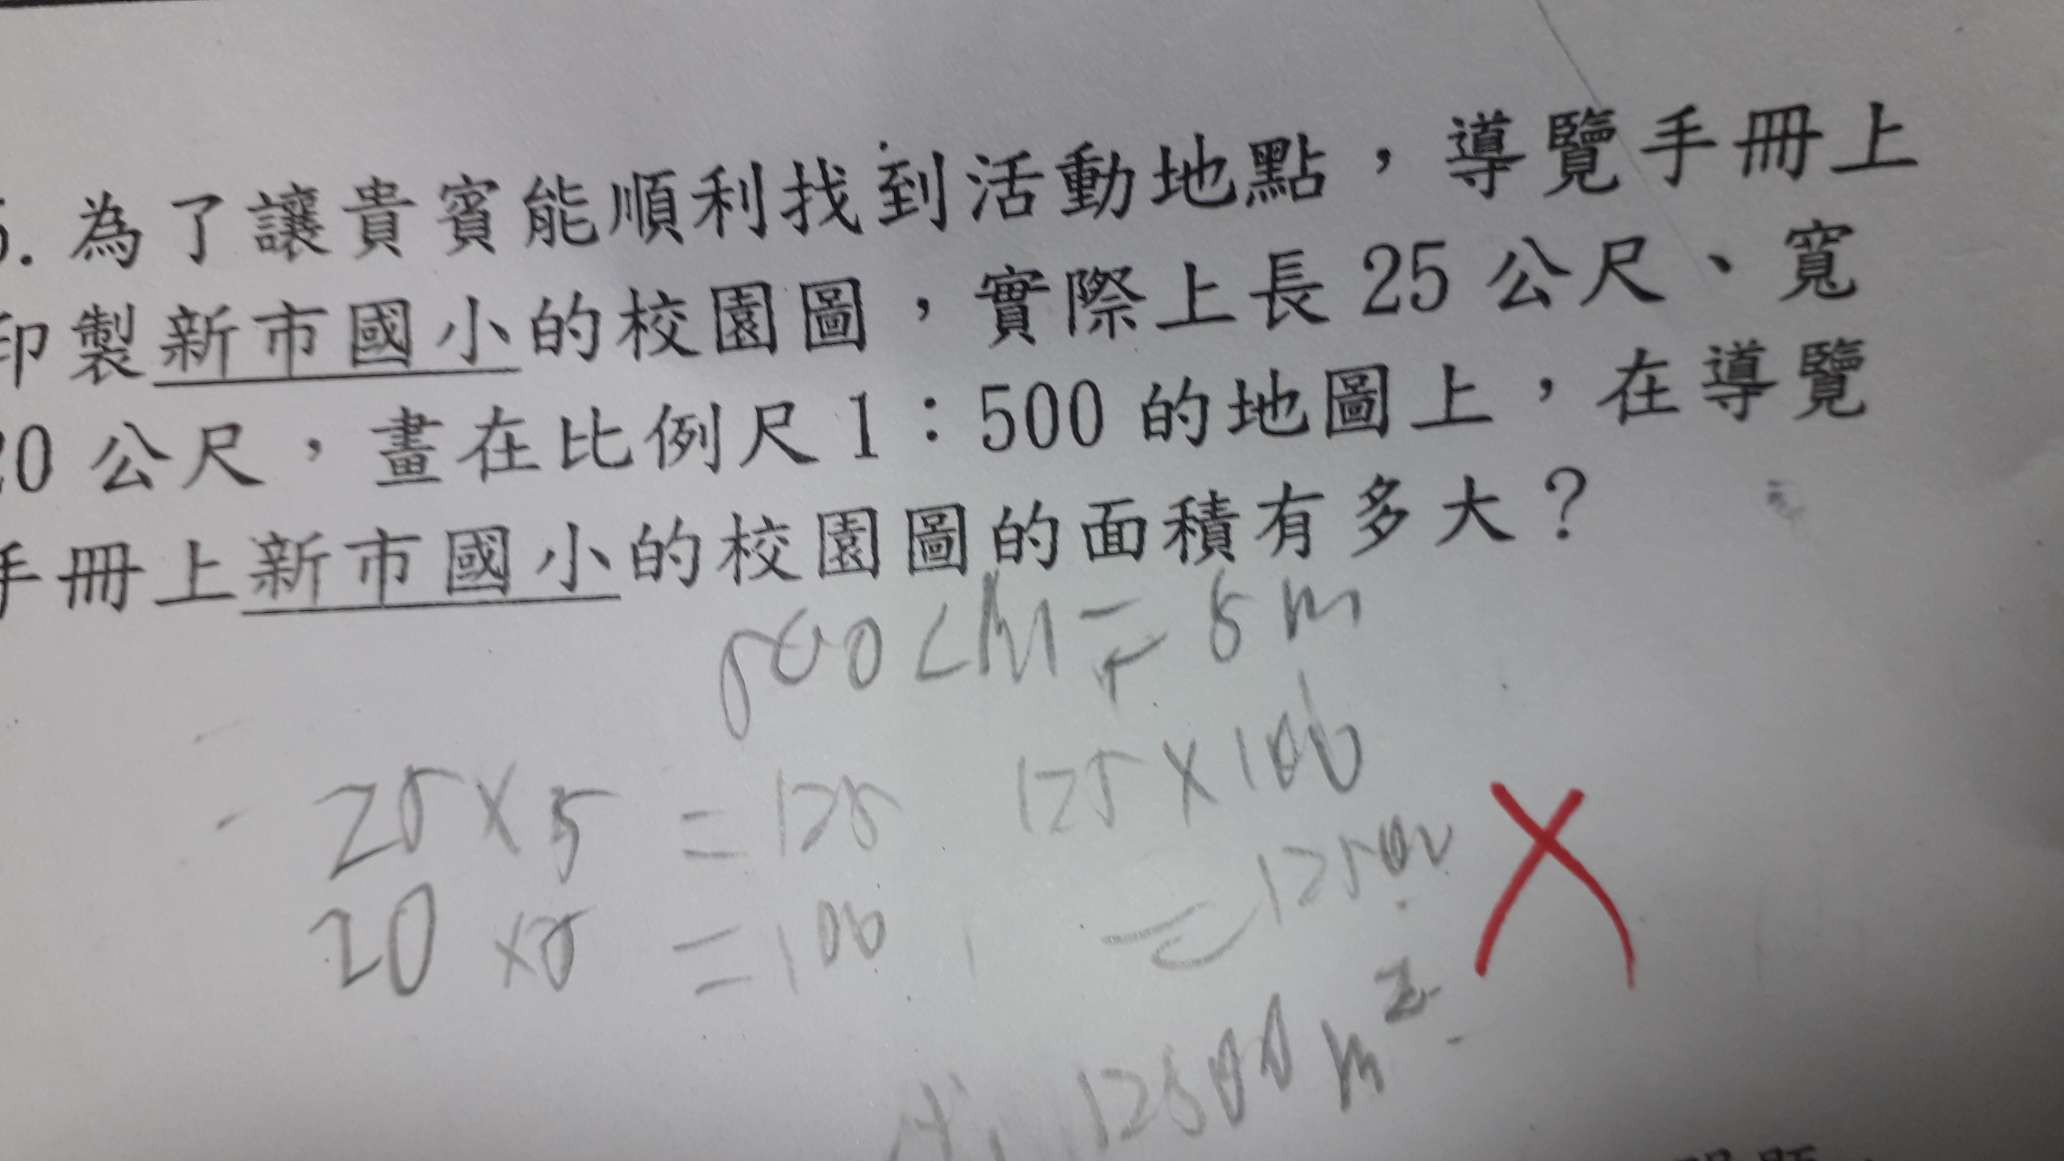 5. 為了讓貴賓能順利找到活動地點，導覽手冊上
印製新市國小的校園圖，實際上長 25 公尺、寬
20 公尺，畫在比例尺 1：500 的地圖上，在導覽
手冊上新市國小的校園圖的面積有多大？
500cm = 5m
25×5 = 125
20×5 = 100
125×100
= 12500
A: 12500 m²